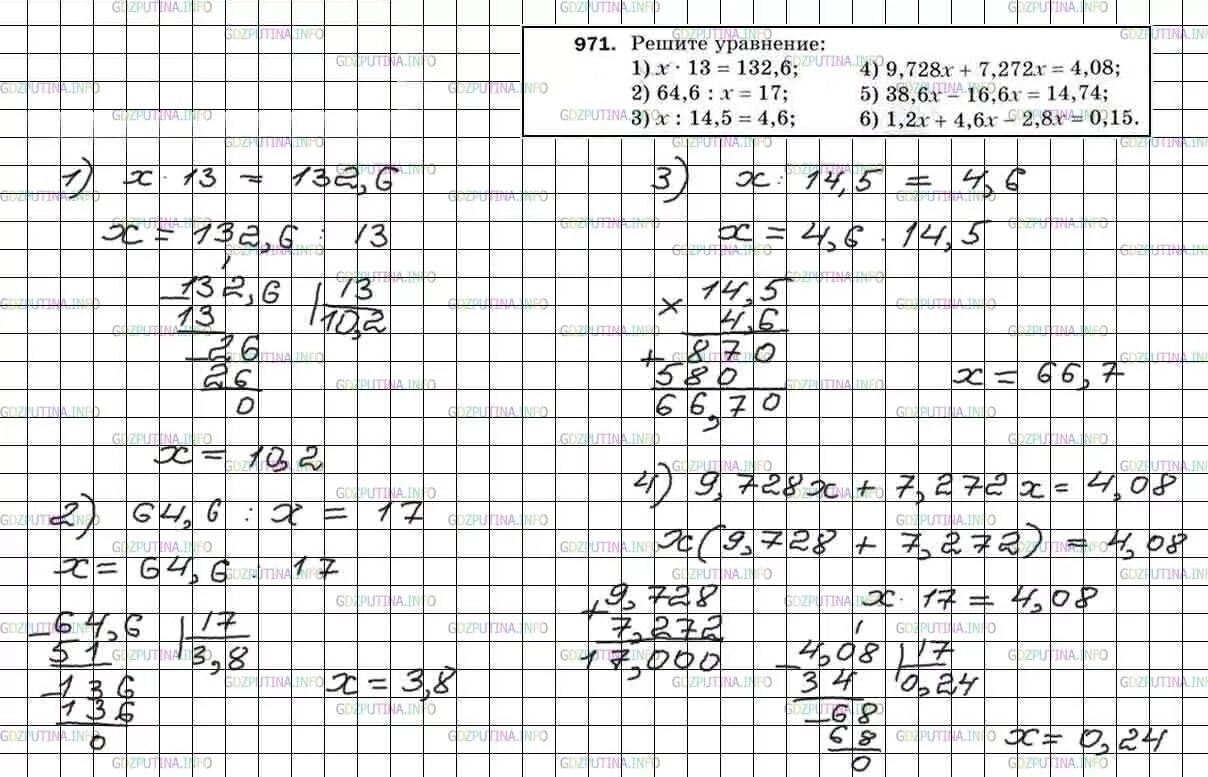 971. Решите уравнение:
1) x · 13 = 132,6;
2) 64,6 : x = 17;
3) x : 14,5 = 4,6;
4) 9,728x + 7,272x = 4,08;
5) 38,6x − 16,6x = 14,74;
6) 1,2x + 4,6x − 2,8x = 0,15.
1) x · 13 = 132,6
x = 132,6 : 13
−132,6 | 13
13 | 10,2
−26
26
0
x = 10,2
2) 64,6 : x = 17
x = 64,6 : 17
−64,6 | 17
51 | 3,8
−136
136
0
x = 3,8
3) x : 14,5 = 4,6
x = 4,6 · 14,5
× 14,5
4,6
+ 870
580
66,70
x = 66,7
4) 9,728x + 7,272x = 4,08
x(9,728 + 7,272) = 4,08
+9,728
7,272
17,000
x · 17 = 4,08
−4,08 | 17
34 | 0,24
−68
68
0
x = 0,24
GDZPUTINA.INFO